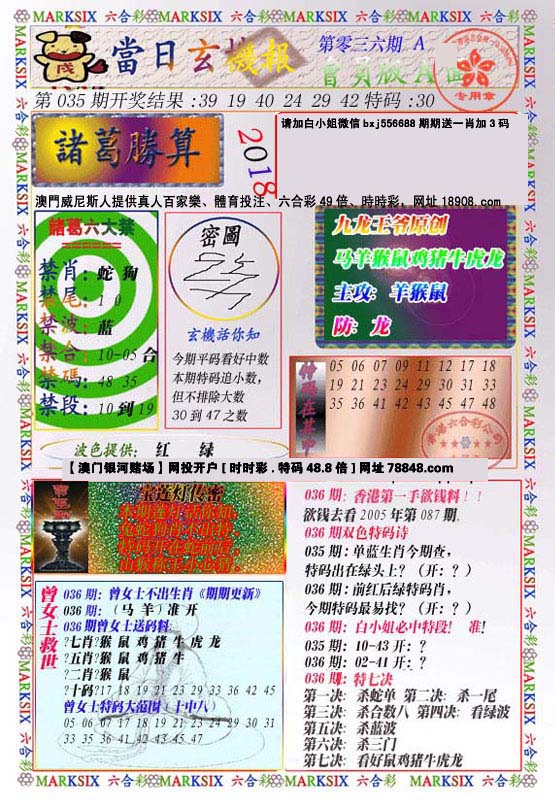 MARKSIX 六合彩 MARKSIX 六合彩 MARKSIX 六合彩 MARKSIX
當日玄機報
第零三六期 A
會員版A面
专用章
第 035 期开奖结果 :39 19 40 24 29 42 特码 :30
諸葛勝算
2018
请加白小姐微信 bxj556688 期期送一肖加 3 码
澳門威尼斯人提供真人百家樂、體育投注、六合彩 49 倍、時時彩，网址 18908. com
諸葛六大禁
禁肖: 蛇 狗
禁尾: 1 0
禁波: 蓝
禁合: 10-05 合
禁碼: 48 35
禁段: 10 到 19
密圖
玄機話你知
今期平码看好中数
本期特码追小数,
但不排除大数
30 到 47 之数
九龙王爷原创
马羊猴鼠鸡猪牛虎龙
主攻: 羊猴鼠
防: 龙
特码在其中
05 06 07 09 11 12 17 18
19 21 23 24 29 30 31 33
35 36 41 42 43 45 47 48
波色提供: 红 绿
【 澳门银河赌场 】 网投开户 [ 时时彩 . 特码 48.8 倍 ] 网址 78848.com
宝莲灯传密
036 期: 香港第一手欲钱料 ! !
欲钱去看 2005 年第 087 期.
036 期双色特码诗
035 期: 单蓝生肖今期查，
特码出在绿头上? （开: ? ）
036 期: 前红后绿特码肖，
今期特码最易找? （开: ? ）
036 期: 白小姐必中特段! 准!
035 期: 10-43 开: ?
036 期: 02-41 开: ?
036 期: 特七决
第一决: 杀蛇单 第二决: 杀一尾
第三决: 杀合数八 第四决: 看绿波
第五决: 杀蓝波
第六决: 杀三门
第七决: 看好鼠鸡猪牛虎龙
曾女士救世
036 期: 曾女士不出生肖《期期更新》
036 期: （ 马 羊 ）准 开
036 期曾女士送码料:
?七肖?猴 鼠 鸡 猪 牛 虎 龙
?五肖?猴 鼠 鸡 猪 牛
?二肖?猴 鼠
?十码?17 18 19 21 23 29 33 36 42 45
曾女士特码大范围（十中八）
05 06 07 17 18 19 21 23 24 29 30 31
33 35 36 41 42 43 45 47
MARKSIX 六合彩 MARKSIX 六合彩 MARKSIX 六合彩 MARKSIX